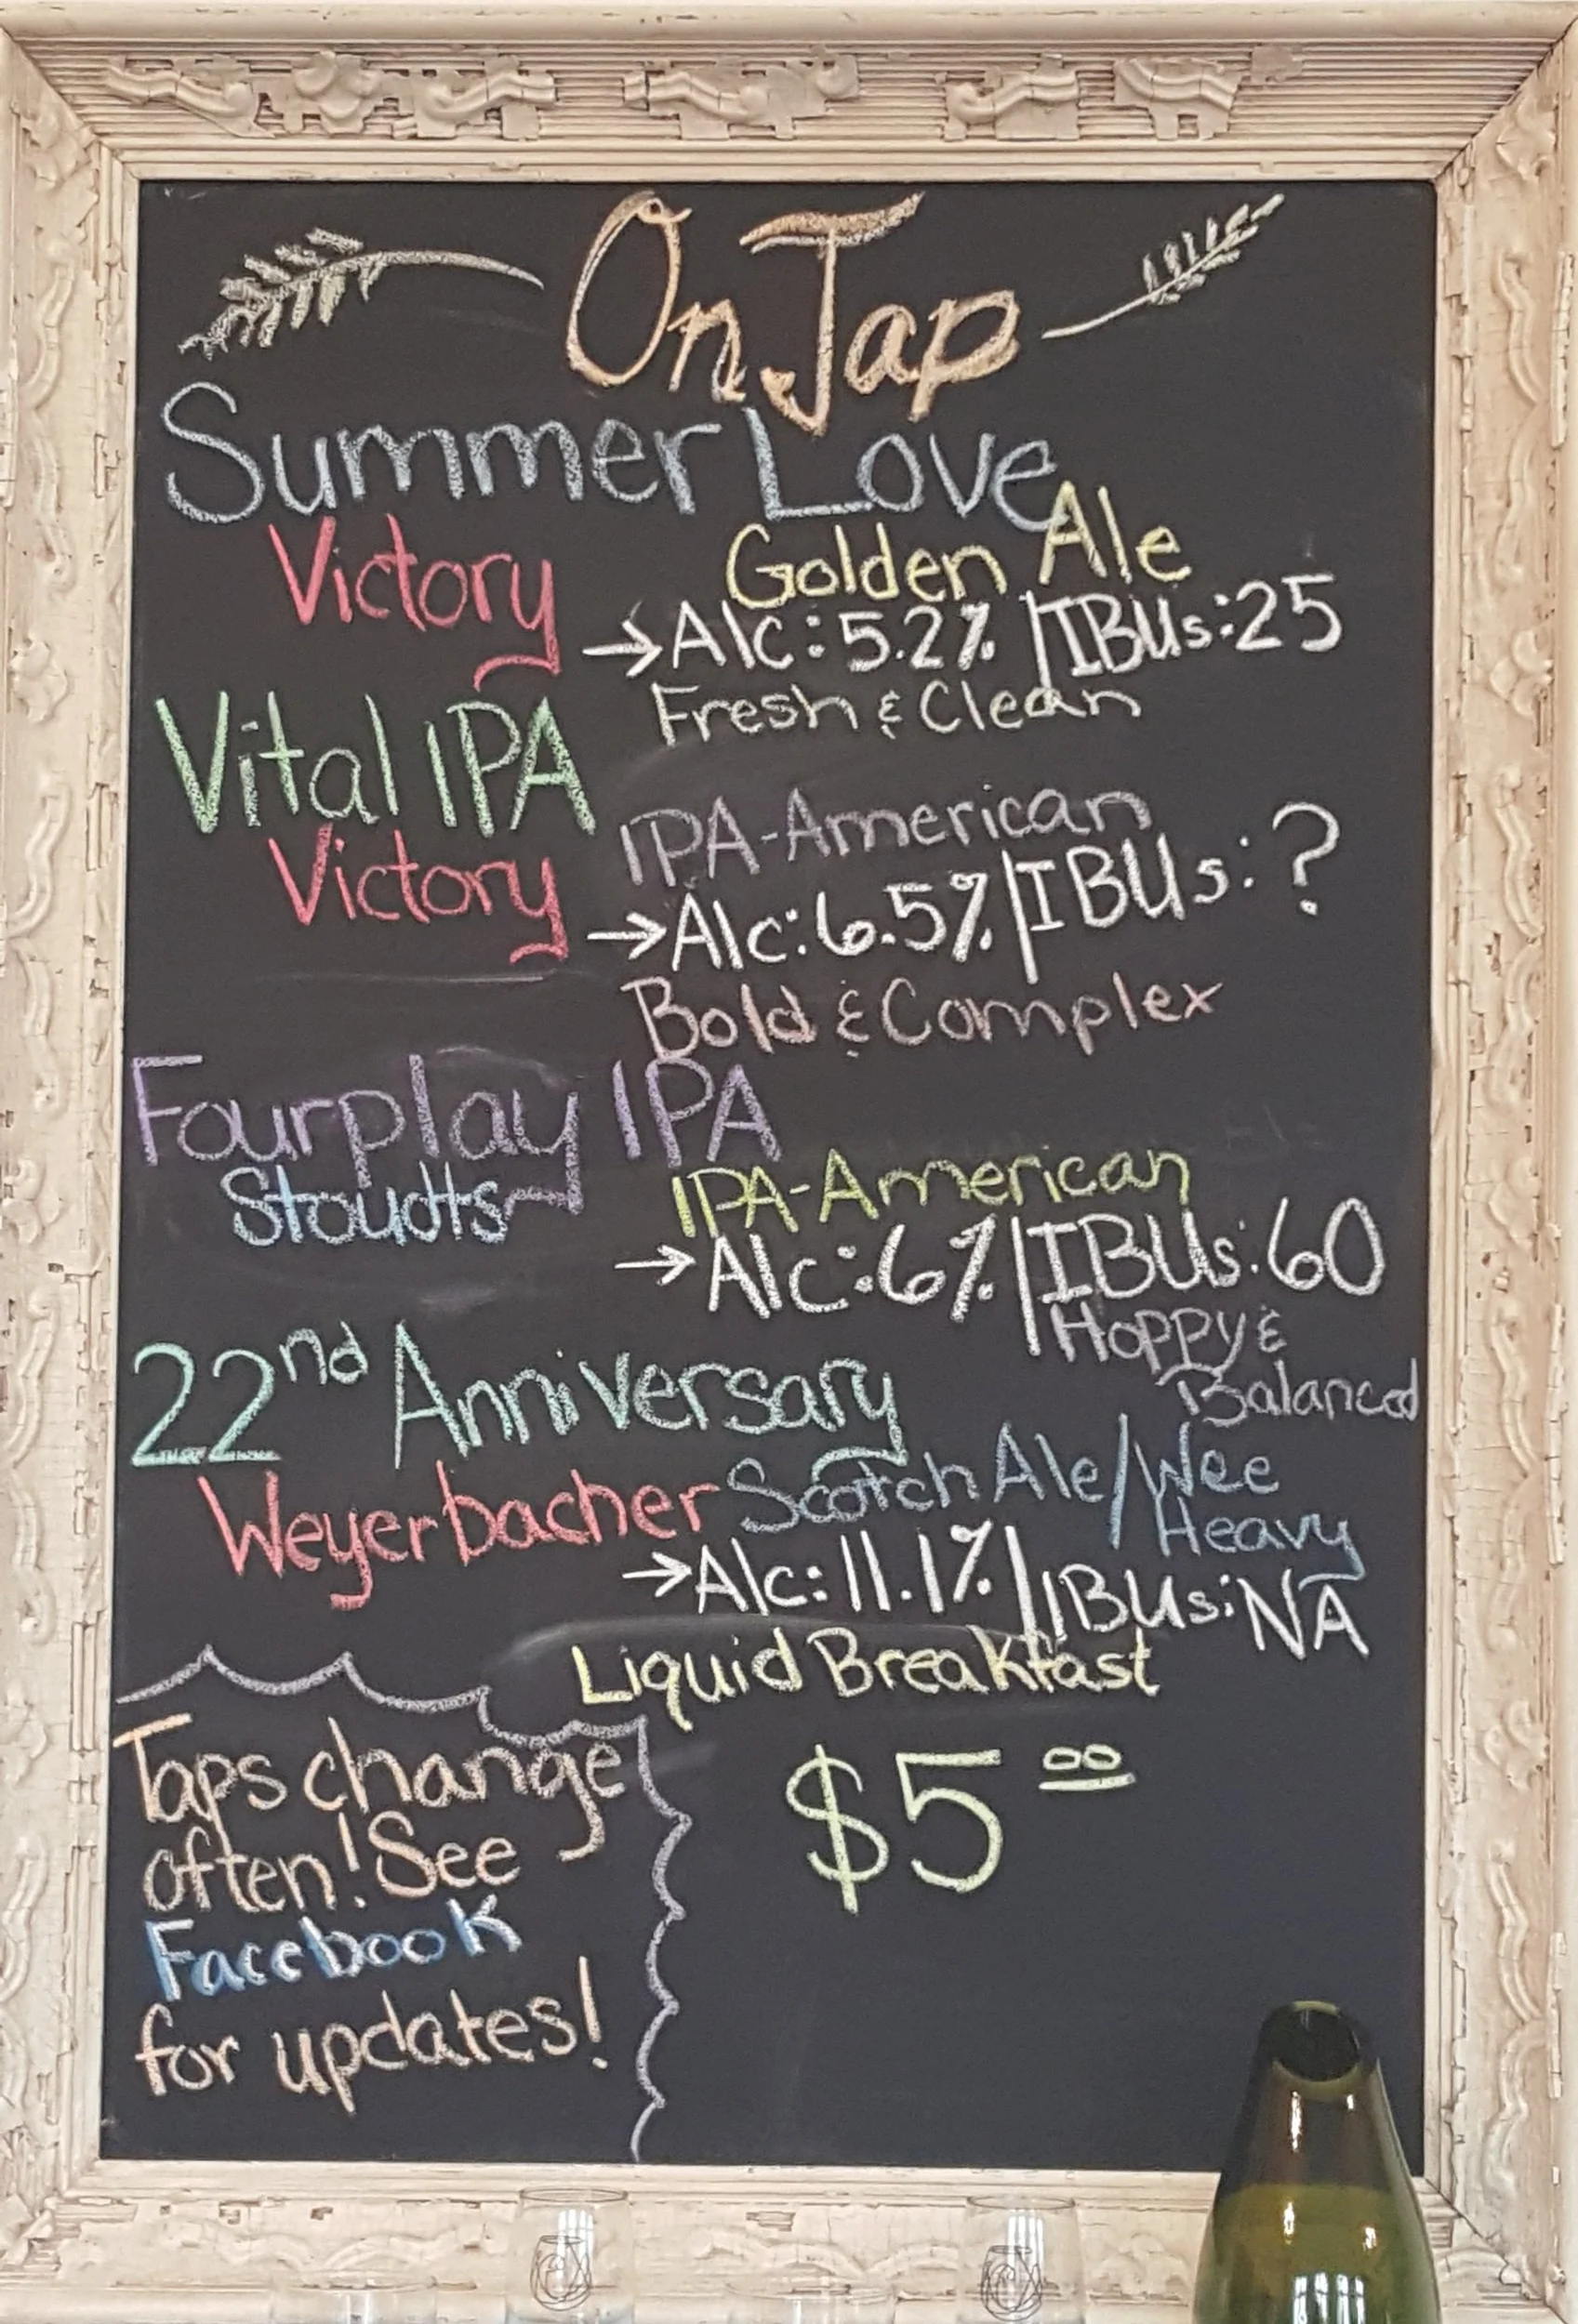 On Tap
Summer Love
Victory
Golden Ale
→Alc: 5.2% | IBUs: 25
Fresh & Clean
Vital IPA
Victory
IPA-American
→Alc: 6.5% | IBUs: ?
Bold & Complex
Fourplay IPA
Stoudts
IPA-American
→Alc: 6% | IBUs: 60
Hoppy &
Balanced
22nd Anniversary
Weyerbacher
Scotch Ale/Wee
Heavy
→Alc: 11.1% | IBUs: NA
Liquid Breakfast
$5 00
Taps change
often! See
Facebook
for updates!